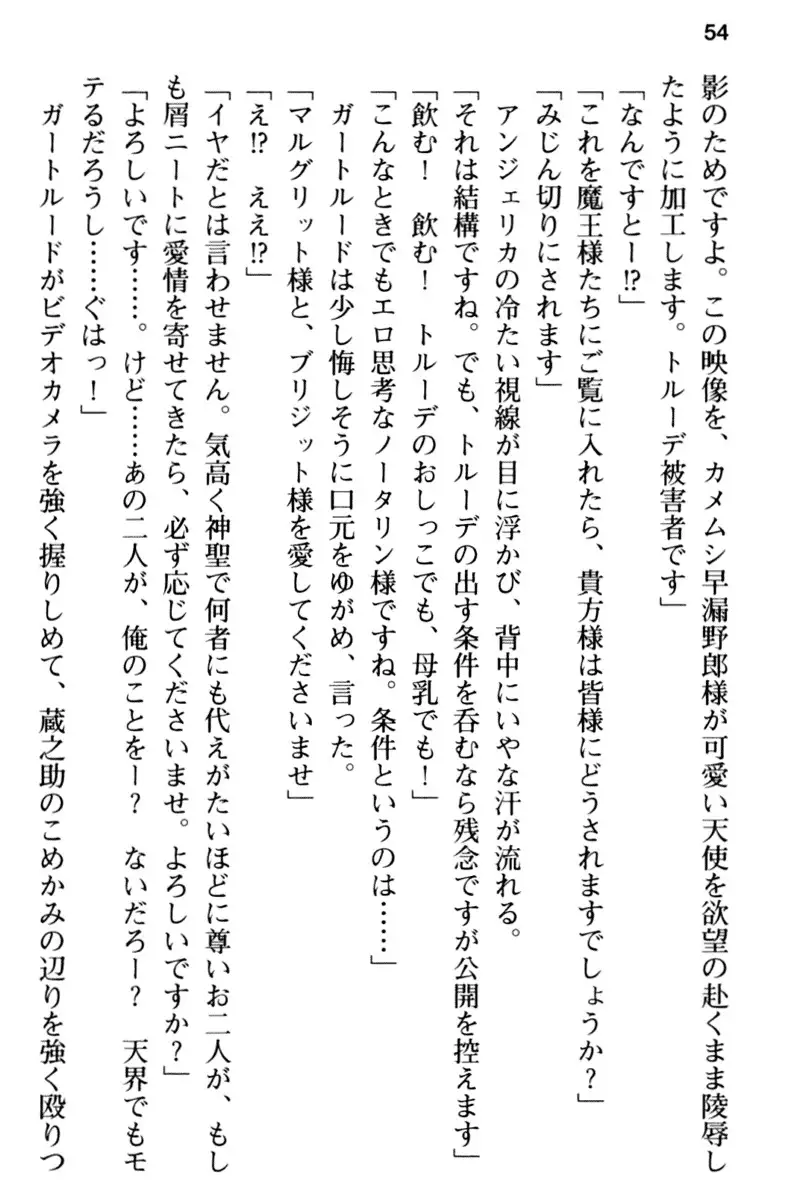 54
影のためですよ。この映像を、カメムシ早漏野郎様が可愛い天使を欲望の赴くまま陵辱し
たように加工します。トルーデ被害者です」
「なんですとー!?」
「これを魔王様たちにご覧に入れたら、貴方様は皆様にどうされますでしょうか？」
「みじん切りにされます」
アンジェリカの冷たい視線が目に浮かび、背中にいやな汗が流れる。
「それは結構ですね。でも、トルーデの出す条件を呑むなら残念ですが公開を控えます」
「飲む！　飲む！　トルーデのおしっこでも、母乳でも！」
「こんなときでもエロ思考なノータリン様ですね。条件というのは……」
ガートルードは少し悔しそうに口元をゆがめ、言った。
「マルグリット様と、ブリジット様を愛してくださいませ」
「え!?　ええ!?」
「イヤだとは言わせません。気高く神聖で何者にも代えがたいほどに尊いお二人が、もし
も屑ニートに愛情を寄せてきたら、必ず応じてくださいませ。よろしいですか？」
「よろしいです……。けど……あの二人が、俺のことをー？　ないだろー？　天界でもモ
テるだろうし……ぐはっ！」
ガートルードがビデオカメラを強く握りしめて、蔵之助のこめかみの辺りを強く殴りつ